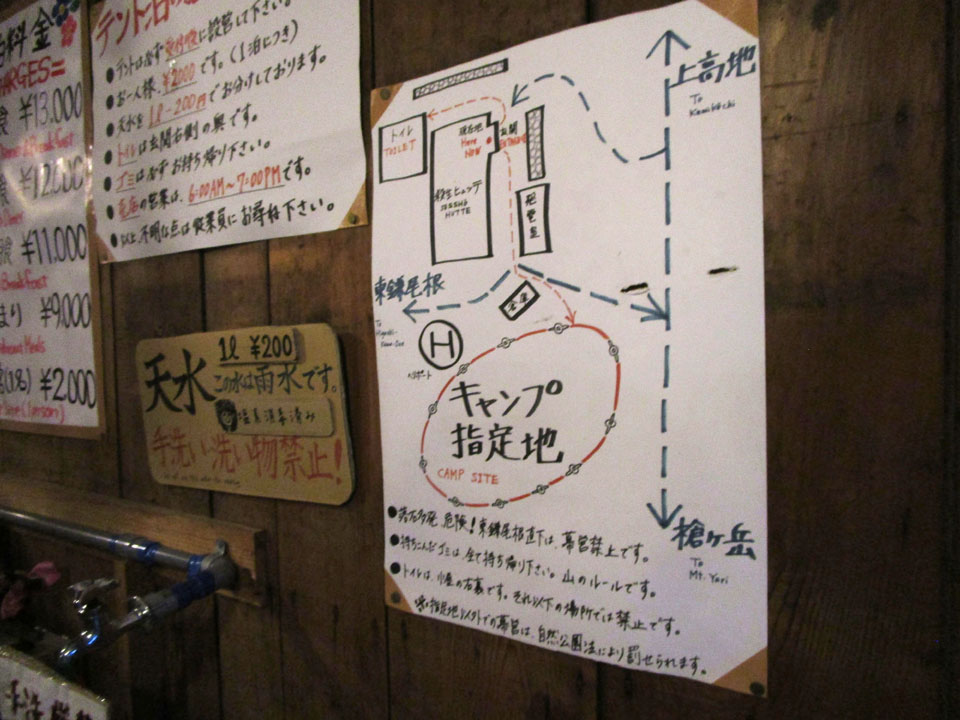 料金
ARGES=
食 ¥13,000
Dinner & Breakfast
¥12,000
Dinner
¥11,000
Breakfast
まり ¥9,000
Without Meals
¥2,000
テント泊
●テントは必ず受付後に設営して下さい。
●お一人様、¥2000です。(1泊につき)
●天水を1ℓ-200円でお分けしております。
●トイレは玄関右側の奥です。
●ゴミは必ずお持ち帰り下さい。
●売店の営業は、6:00AM~7:00PMです。
●以上、不明な点は従業員にお尋ね下さい。
天水 1ℓ ¥200
この水は雨水です。
塩素消毒済み
手洗い洗い物禁止!
上高地
To
Kamikochi
トイレ
TOILET
現在地
Here
NOW
玄関
ENTRANCE
殺生ヒュッテ
SESSHO
HUTTE
発電室
東鎌尾根
To
Higashi-
Kama-One
倉庫
H
ヘリポート
キャンプ
指定地
CAMP SITE
槍ヶ岳
To
Mt. Yari
●落石多発、危険!東鎌尾根直下は、幕営禁止です。
●持ちこんだゴミは、全て持ち帰り下さい。山のルールです。
●トイレは、小屋の右裏です。それ以外の場所では禁止です。
※指定地以外での幕営は、自然公園法により罰せられます。
手洗